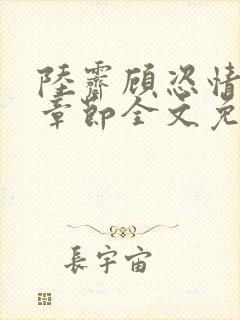 陆霽顾恣情
章節全文免
長宇宙